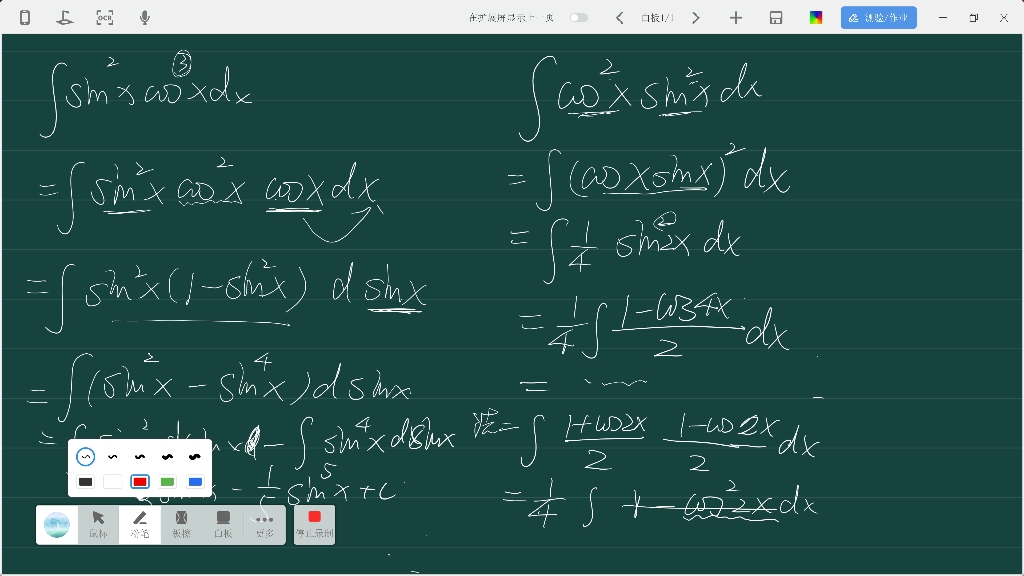 OCR
在扩展屏显示上一页
白板1/1
测验/作业
∫sin²x cos³x dx
=∫sin²x cos²x cosx dx
=∫sin²x(1-sin²x) d sinx
=∫(sin²x - sin⁴x)d sinx
- ∫sin⁴x dsinx
- 1/5 sin⁵x + c
∫cos²x sin²x dx
=∫(cosx sinx)² dx
=∫1/4 sin²2x dx
=1/4∫(1-cos4x)/2 dx
= ……
法二=∫(1+cos2x)/2 (1-cos2x)/2 dx
=1/4∫1-cos²2x dx
鼠标
粉笔
板擦
白板
更多
停止录制